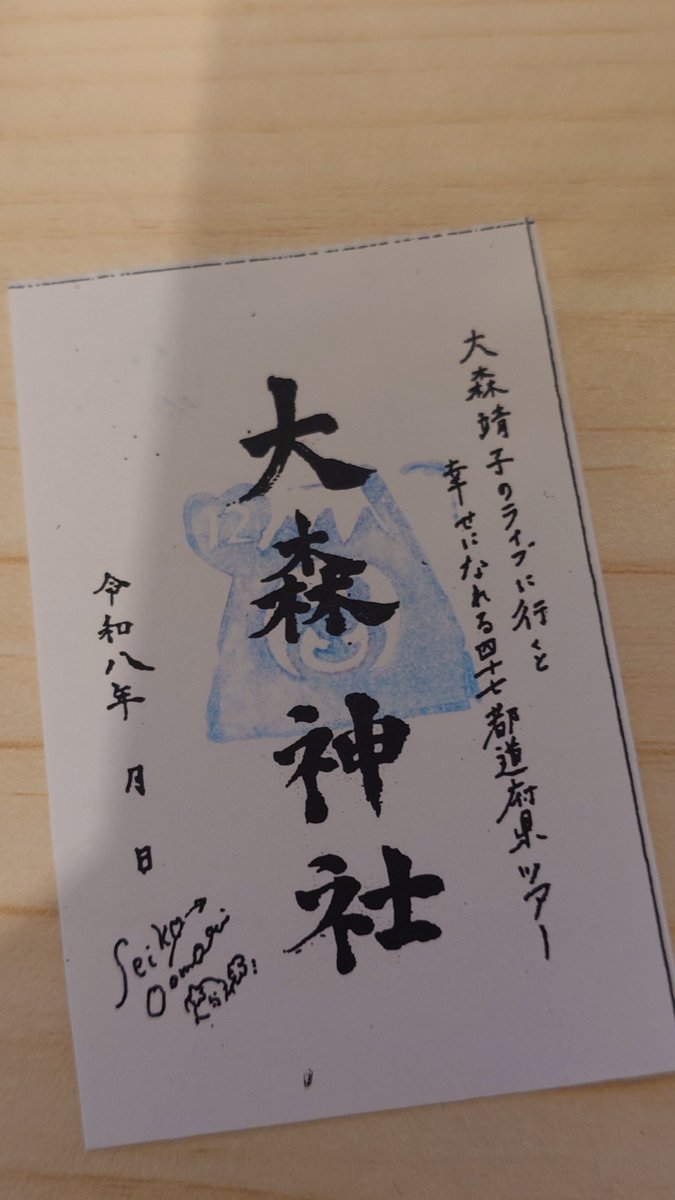 大森靖子のライブに行くと
幸せになれる四十七都道府県ツアー
大森神社
令和八年　月　日
Seiko
Oomori